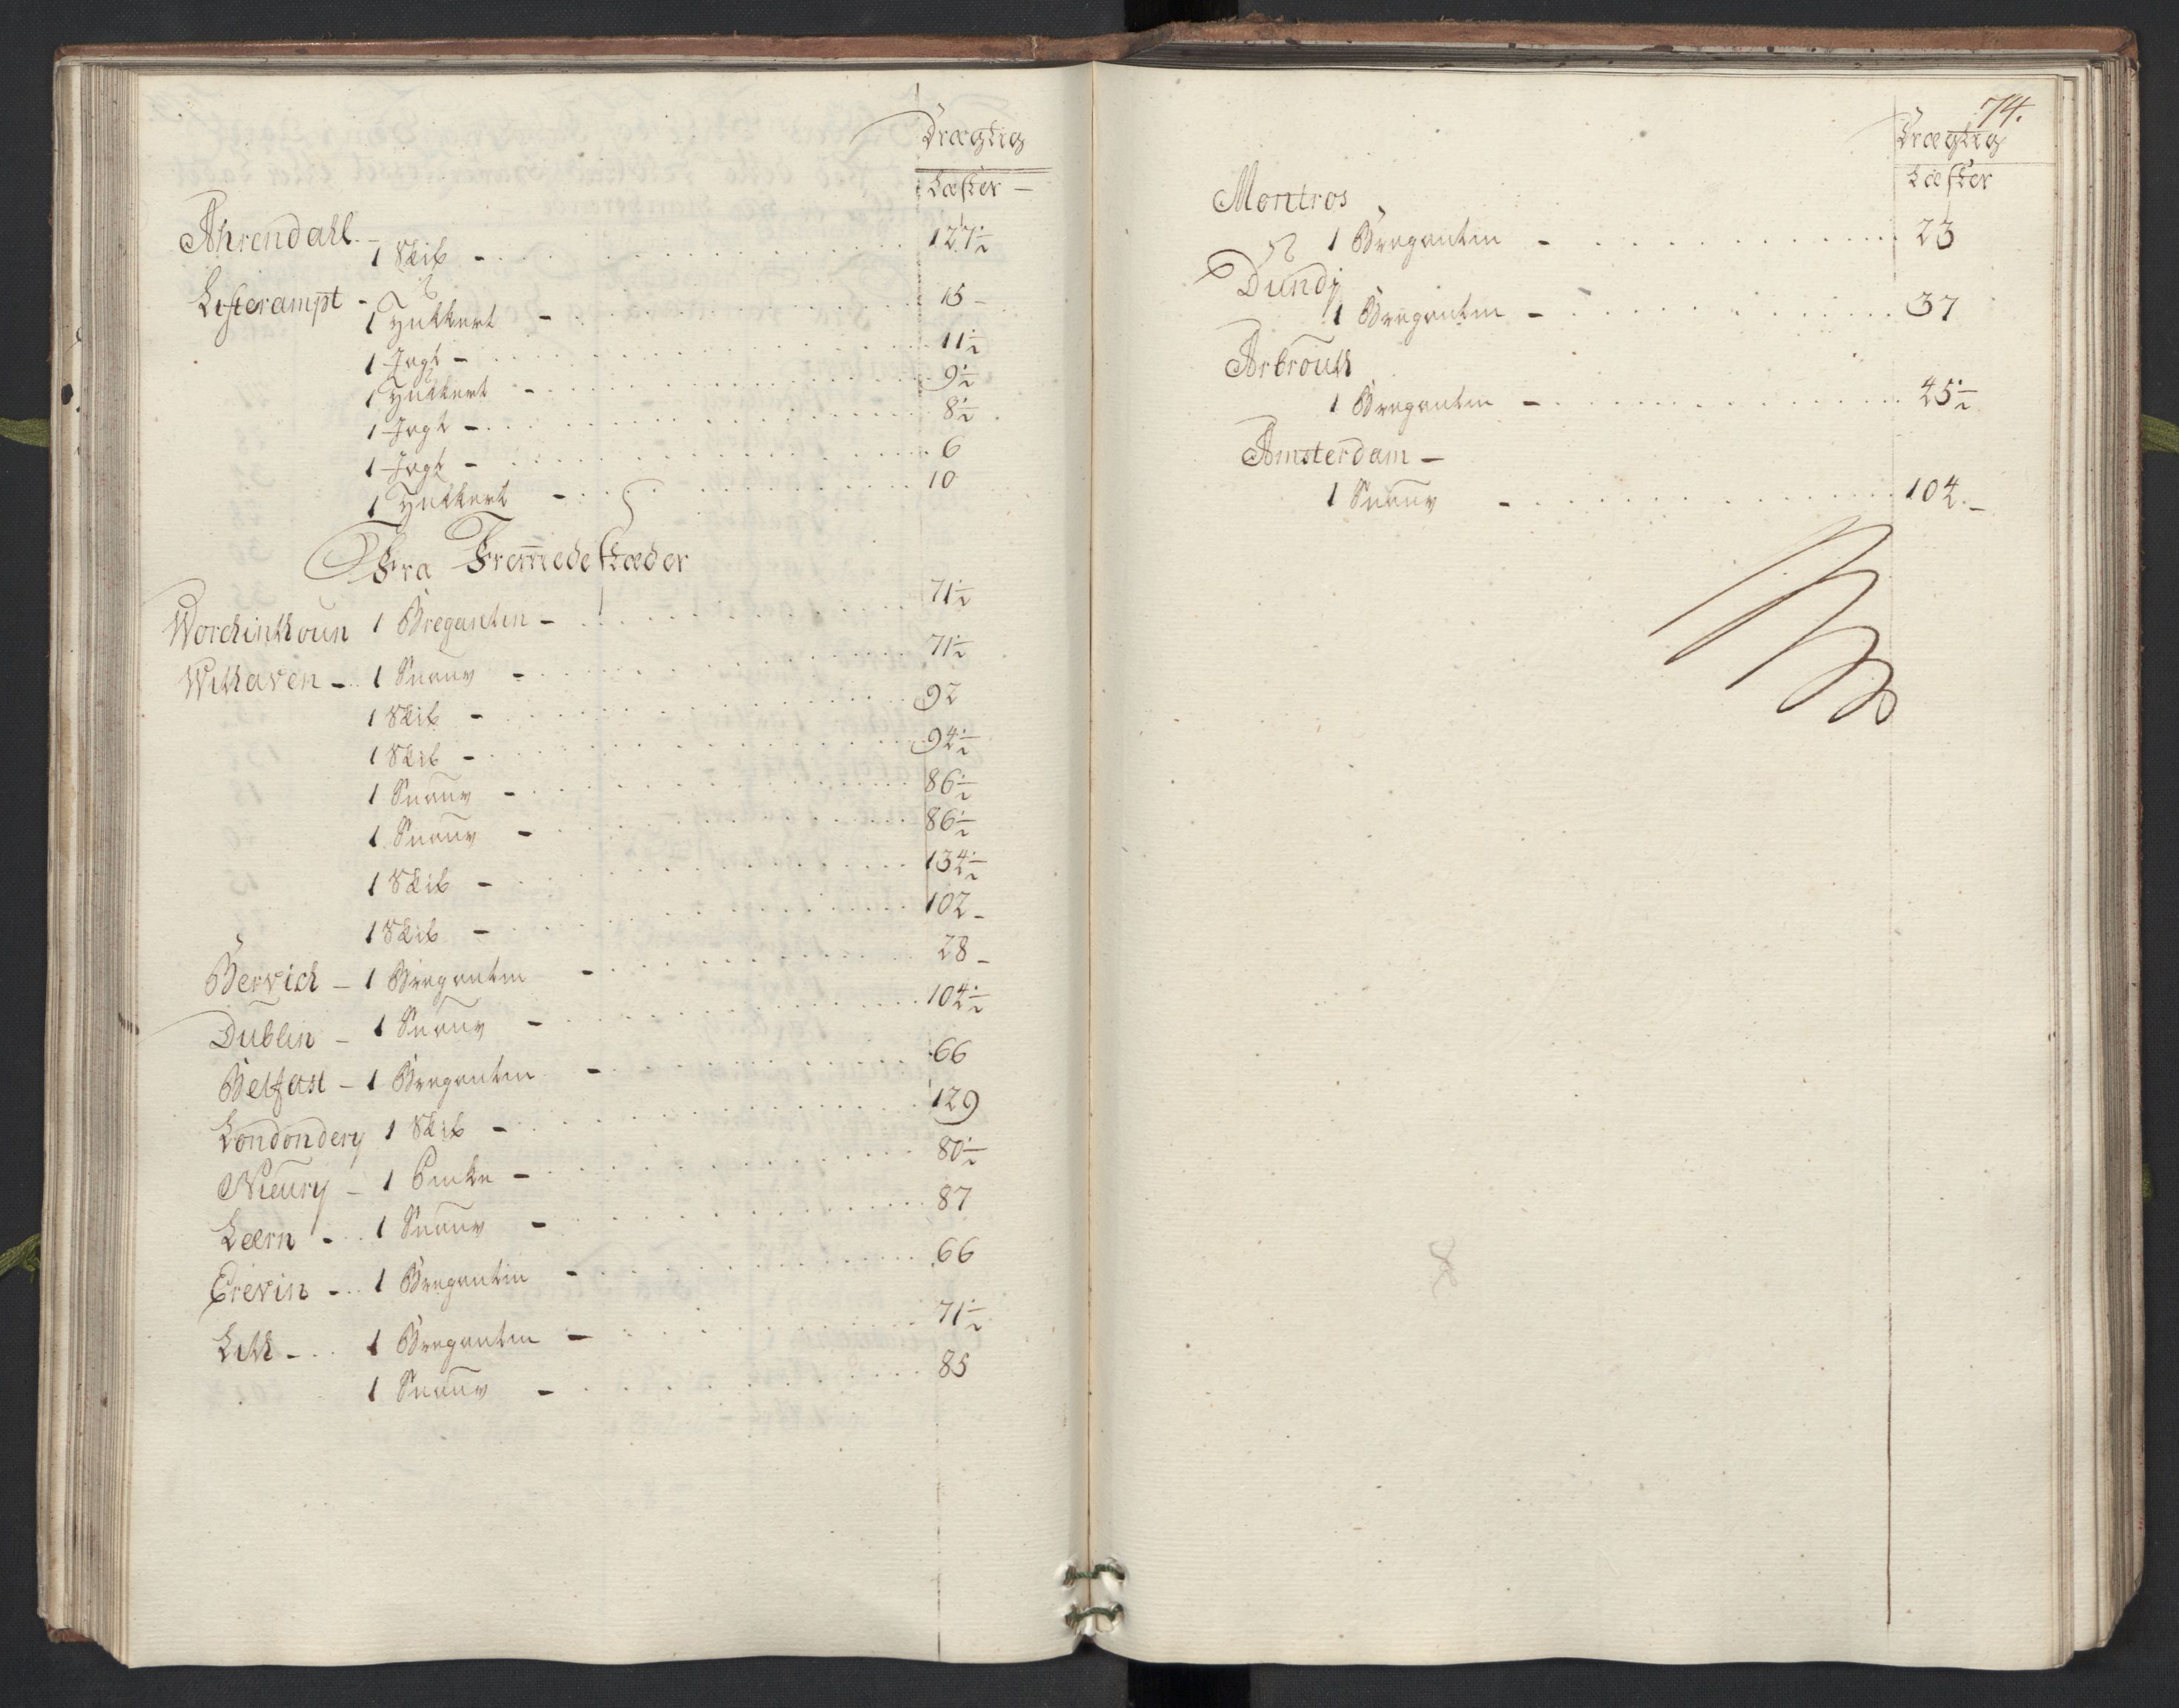 Drægtig
Læster –
Ahrendahl. –
1 Skib – 127½
Listerampt –
1 Hukkert – 15 –
1 Jagt – 11½
1 Hukkert – 9½
1 Jagt – 8½
1 Jagt – 6
1 Hukkert – 10
Fra Fremede stæder
Worchinthoun 1 Bregantin – 71½
Withaven – 1 Snauv – 71½
1 Skib – 92
1 Skib – 94½
1 Snauv – 86½
1 Snauv – 86½
1 Skib – 134½
1 Skib – 102 –
Bervich – 1 Bregantin – 28 –
Dublin – 1 Snauv – 104½
Belfast – 1 Bregantin – 66
Londondery 1 Skib – 129
Nieury – 1 Pinke – 80½
Leern – 1 Snauv – 87
Erevin – 1 Bregantin – 66
Lith – 1 Bregantin – 71½
1 Snauv – 85
74.
Drægtig
Læster
Montros
1 Bregantin – 23
Dundj
1 Bregantin – 37
Arbrouth
1 Bregantin – 45½
Amsterdam –
1 Snauv – 104. –